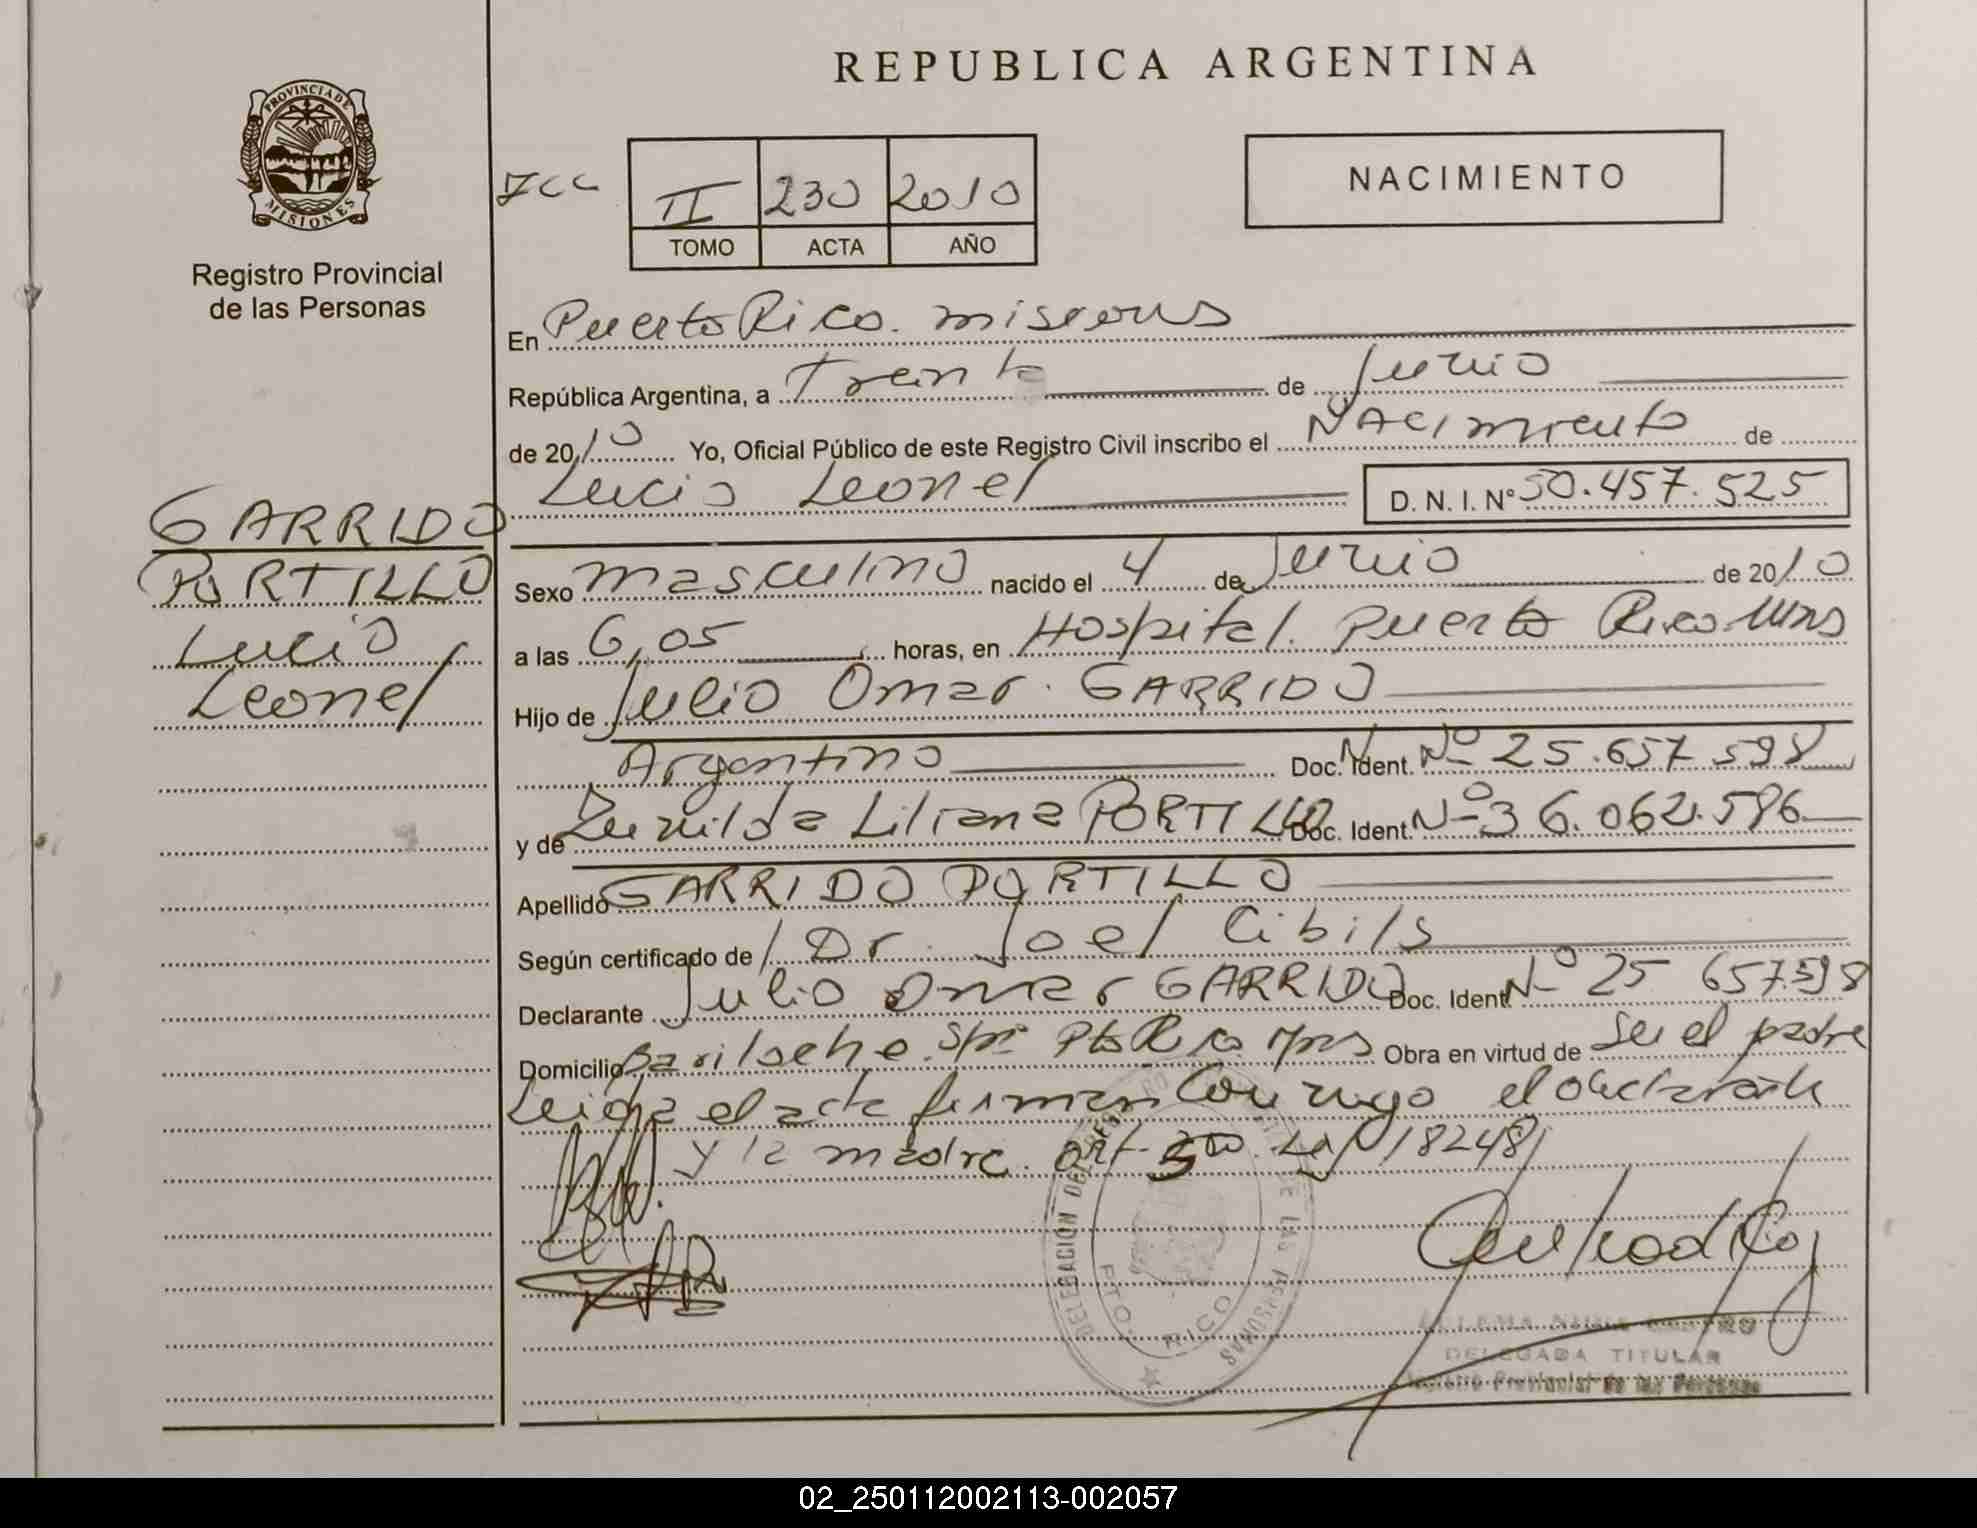 REPUBLICA ARGENTINA
PROVINCIA DE
MISIONES
Registro Provincial
de las Personas
II 230 2010
TOMO ACTA AÑO
NACIMIENTO
En Puerto Rico. Misiones
República Argentina, a Treinta de Junio
de 2010 Yo, Oficial Público de este Registro Civil inscribo el Nacimiento de
Lucio Leonel D. N. I. N° 50.457.525
GARRIDO
PORTILLO
Lucio
Leonel
Sexo masculino nacido el 4 de Junio de 2010
a las 6,05 horas, en Hospital. Puerto Rico Mns
Hijo de Julio Omar. GARRIDO
Argentino Doc. Ident. Nº 25.657.598
y de Zunilda Liliana PORTILLO Doc. Ident. Nº 36.062.596
Apellido GARRIDO PORTILLO
Según certificado de Dr. Joel Cibils
Declarante Julio Omar GARRIDO Doc. Ident Nº 25 657.598
Domicilio Bariloche. Pto Rico. Mns Obra en virtud de Ser el padre
Leida el acta firman Conmigo el declarante
y la madre. Art. 5to. Ley 18248
DELEGACION DEL REGISTRO DE LAS PERSONAS
PTO. RICO
DELEGADA TITULAR
Registro Provincial de las Personas
02_250112002113-002057